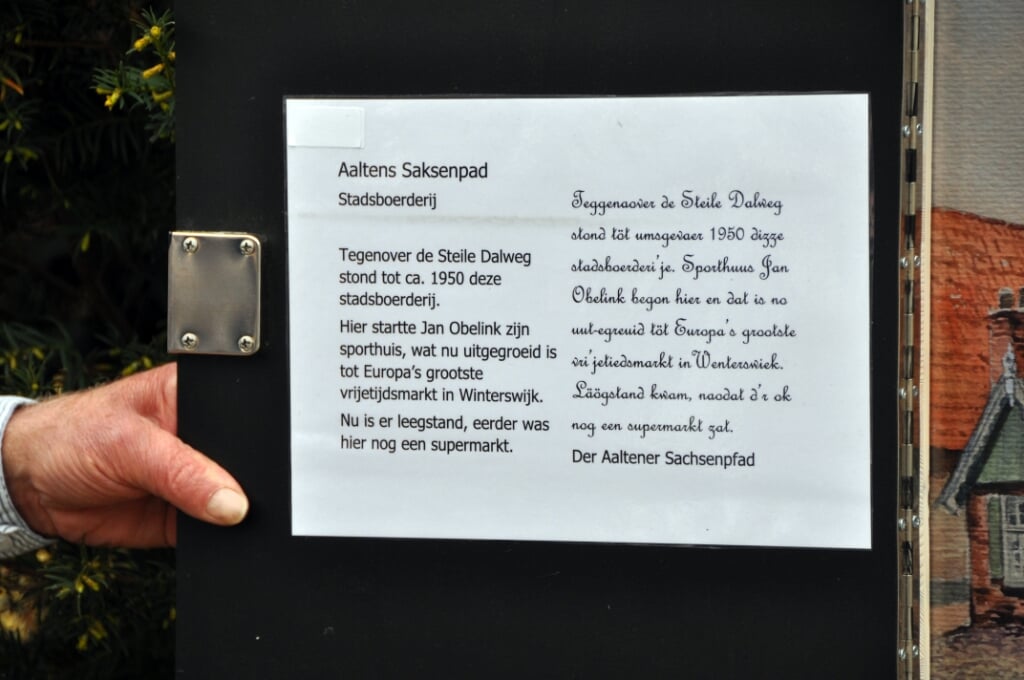 Aaltens Saksenpad
Stadsboerderij
Tegenover de Steile Dalweg
stond tot ca. 1950 deze
stadsboerderij.
Hier startte Jan Obelink zijn
sporthuis, wat nu uitgegroeid is
tot Europa's grootste
vrijetijdsmarkt in Winterswijk.
Nu is er leegstand, eerder was
hier nog een supermarkt.
Teggenaover de Steile Dalweg
stond töt umsgevaer 1950 dizze
stadsboerderi'je. Sporthuus Jan
Obelink begon hier en dat is no
uut-egreuid töt Europa's grootste
vri'jetiedsmarkt in Wenterswiek.
Läögstand kwam, naodat d'r ok
nog een supermarkt zat.
Der Aaltener Sachsenpfad